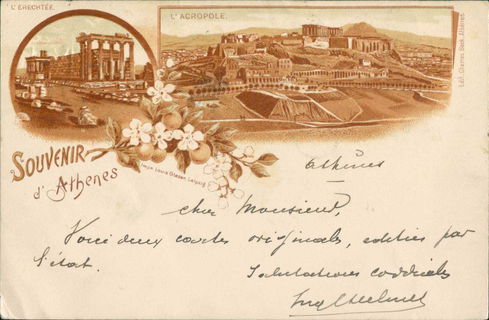 L'ERECHTÉE.
L'ACROPOLE.
Edit. Séis, Athènes.
SOUVENIR
d'Athènes
Impr. Louis Glaser, Leipzig
Athènes
cher Monsieur,
Voici deux cartes originales, editées par
l'état.
Salutations cordiales